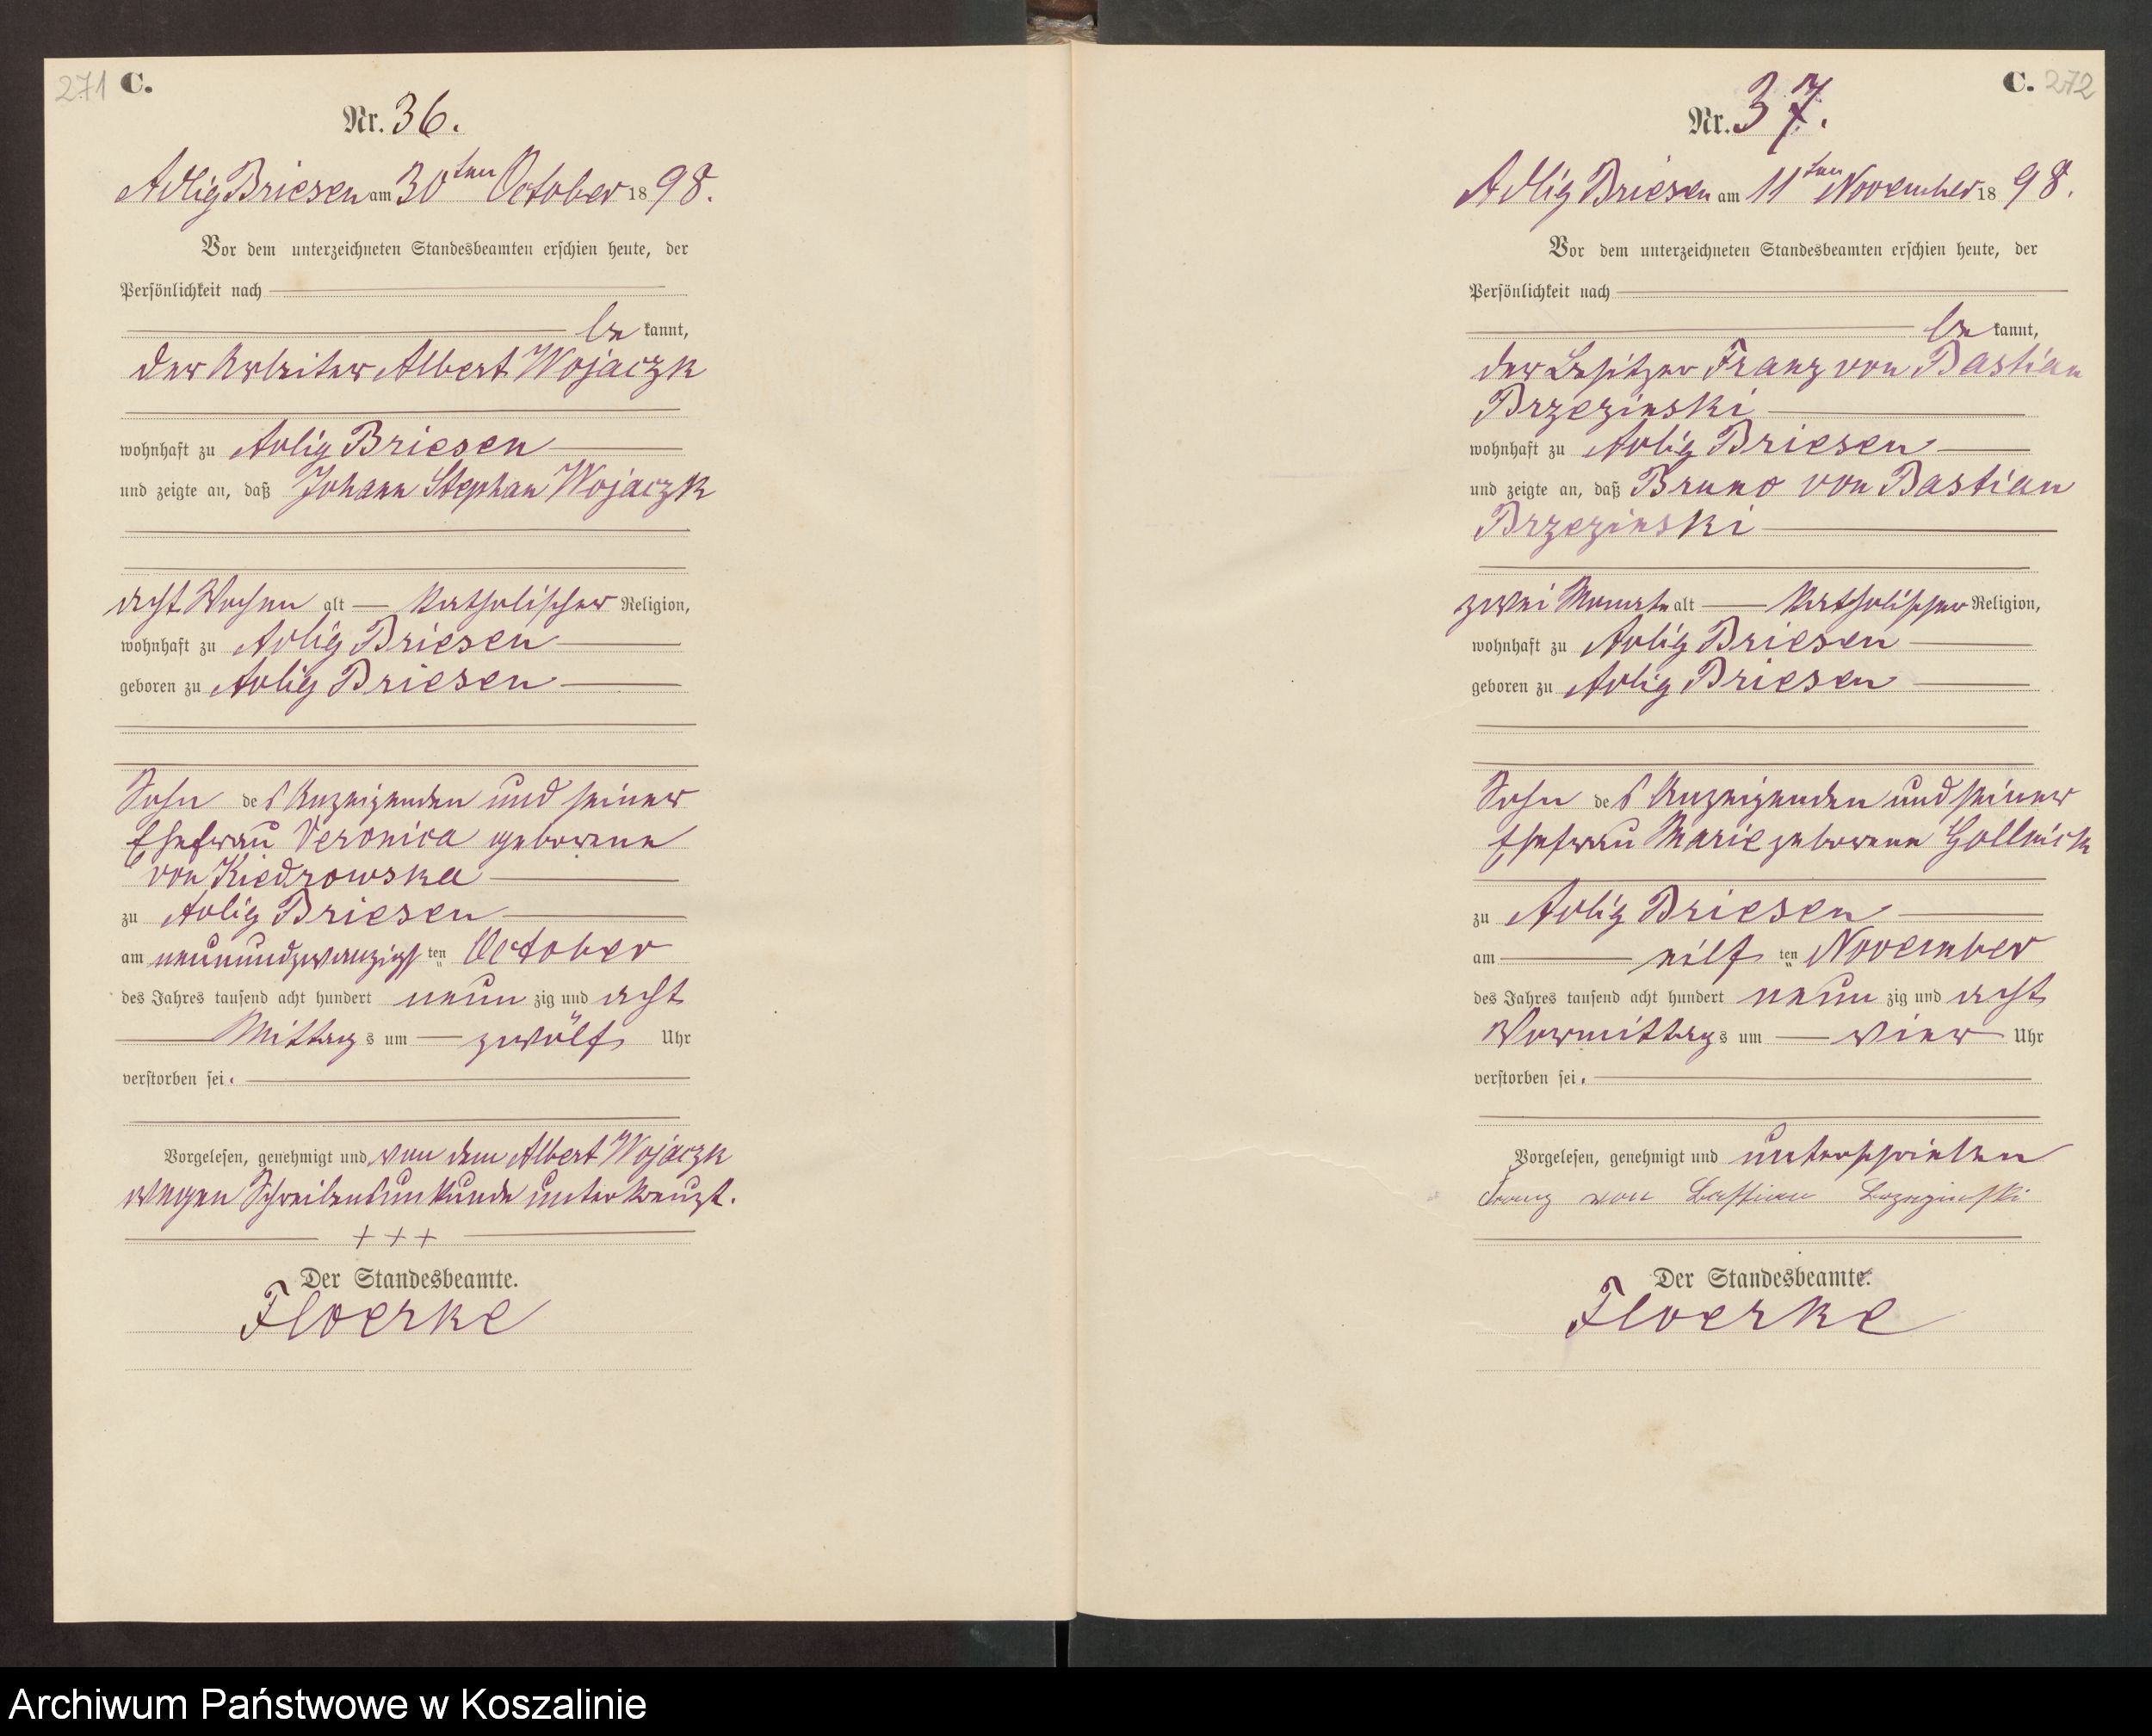 271 C.
Nr. 36.
Adlig Briesen am 30ten October 1898.
Vor dem unterzeichneten Standesbeamten erschien heute, der
Persönlichkeit nach
be kannt,
der Arbeiter Albert Wojaczk
wohnhaft zu Adlig Briesen
und zeigte an, daß Johann Stephan Wojaczk
acht Wochen alt katholischer Religion,
wohnhaft zu Adlig Briesen
geboren zu Adlig Briesen
Sohn des Anzeigenden und seiner
Ehefrau Veronica geborene
von Kiedrowska
zu Adlig Briesen
am neunundzwanzigsten October
des Jahres tausend acht hundert neun zig und acht
Mittags um zwölf Uhr
verstorben sei.
Vorgelesen, genehmigt und von dem Albert Wojaczk
wegen Schreibensunkunde unterkreuzt.
+++
Der Standesbeamte.
Floerke
C. 272
Nr. 37.
Adlig Briesen am 11ten November 1898.
Vor dem unterzeichneten Standesbeamten erschien heute, der
Persönlichkeit nach
be kannt,
der Besitzer Franz von Bastian
Brzezinski
wohnhaft zu Adlig Briesen
und zeigte an, daß Bruno von Bastian
Brzezinski
zwei Monate alt katholischer Religion,
wohnhaft zu Adlig Briesen
geboren zu Adlig Briesen
Sohn des Anzeigenden und seiner
Ehefrau Marie geborene Gollnick
zu Adlig Briesen
am eilf ten November
des Jahres tausend acht hundert neun zig und acht
Vormittags um vier Uhr
verstorben sei.
Vorgelesen, genehmigt und unterschrieben
Franz von Bastian Brzezinski
Der Standesbeamte.
Floerke
Archiwum Państwowe w Koszalinie